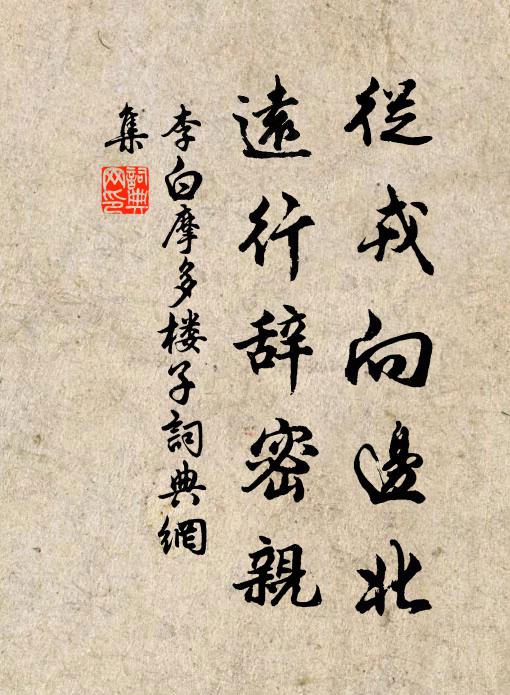 從戎向邊北
遠行辞密親
李白摩多楼子詞典網
集
詞典
网印